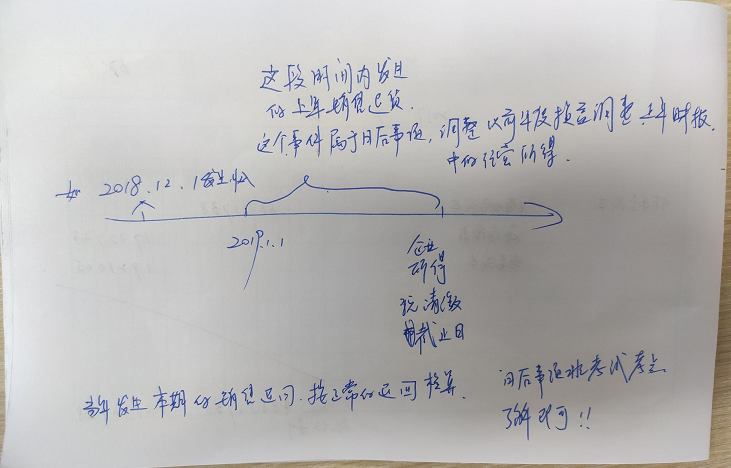 这段时间内发生
的上年销售退货.
这个事件属于日后事项, 调整以前年度损益调整 上年财报
中的经营所得.
如 2018.12.1发生收入
2019.1.1
企业
所得
税清缴
截止日
当年发生本期的销售退回. 按正常的退回核算.
日后事项非考试考点
了解即可!!